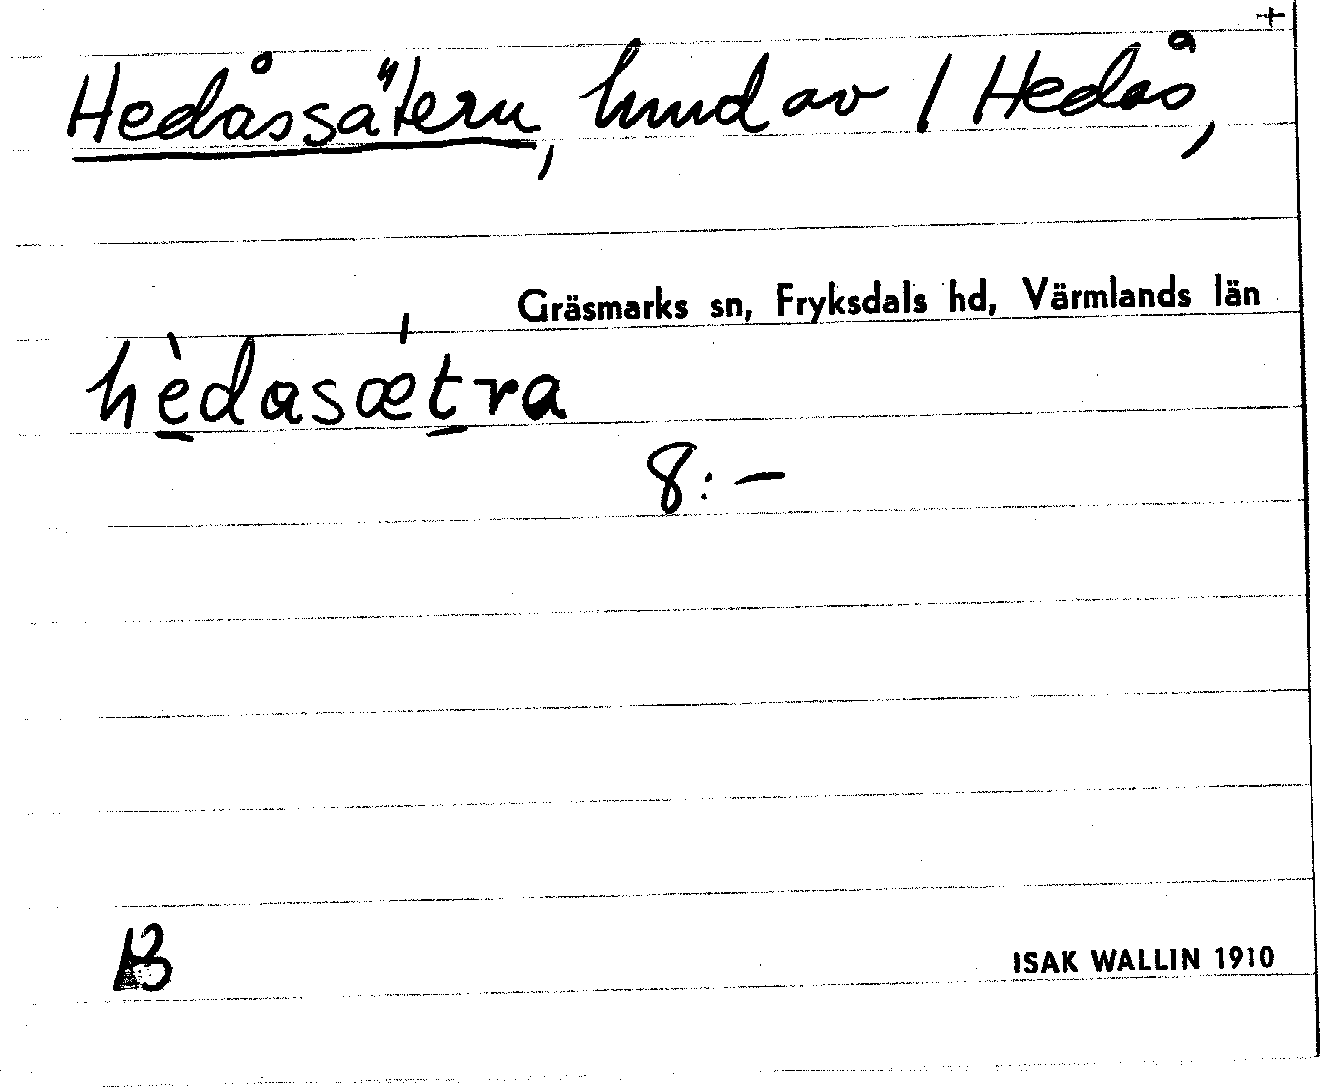 +
Hedåssätern, hmd av 1 Hedås,
Gräsmarks sn, Fryksdals hd, Värmlands län
hèdasætra
8:-
B
ISAK WALLIN 1910